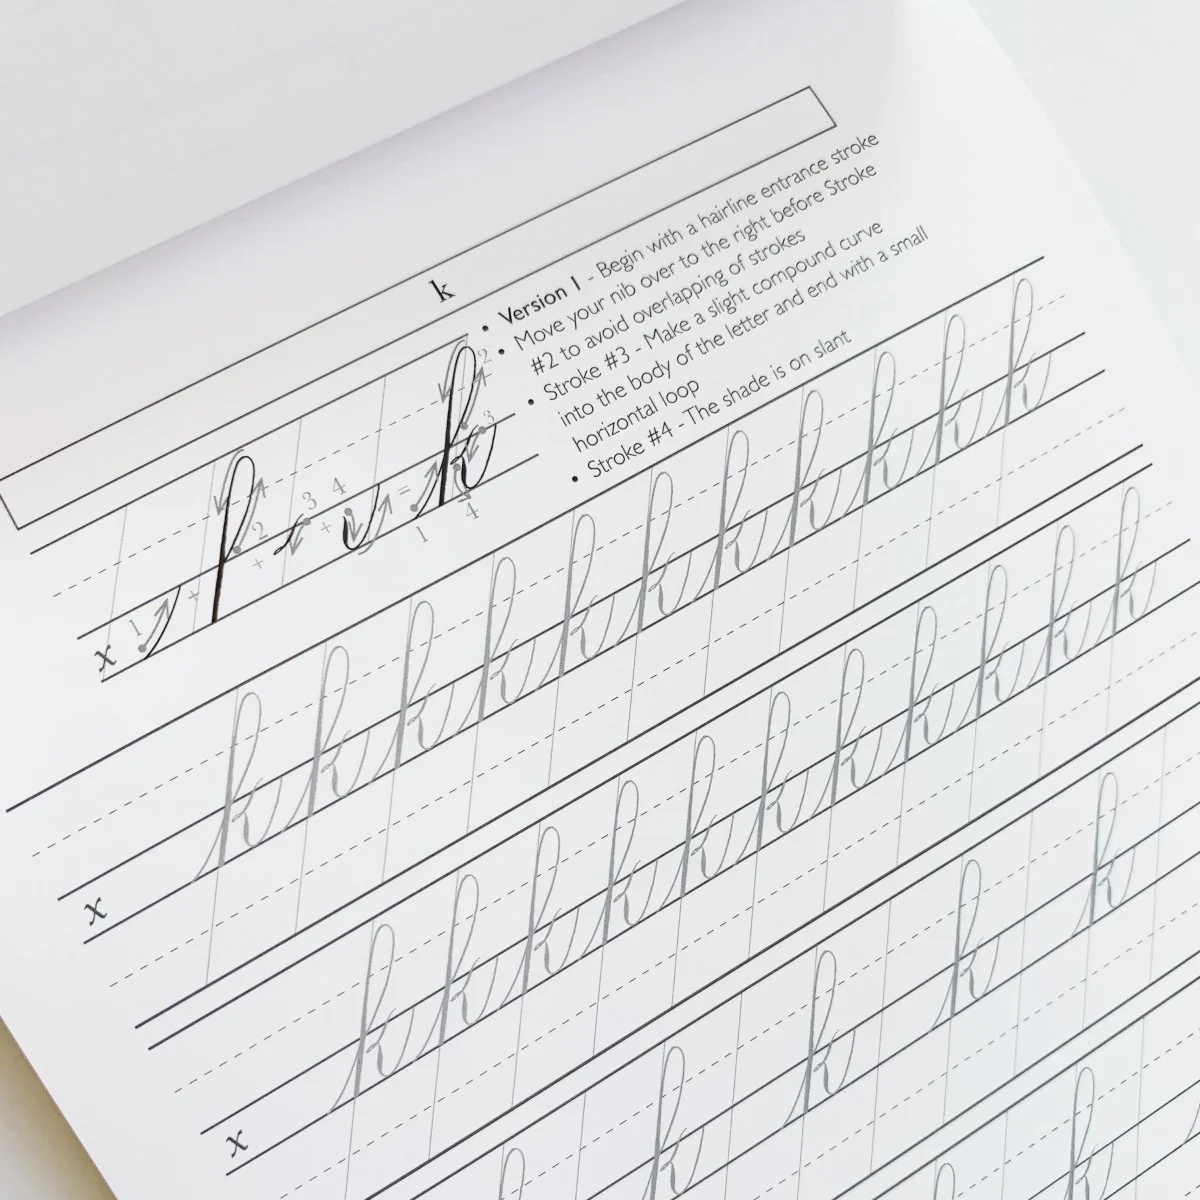 k
• Version 1 - Begin with a hairline entrance stroke
• Move your nib over to the right before Stroke
#2 to avoid overlapping of strokes
• Stroke #3 - Make a slight compound curve
into the body of the letter and end with a small
horizontal loop
• Stroke #4 - The shade is on slant
x 1 + 2 + 3 + 4 = k 1 2 3 4
x k k k k k k k k k k k
x k k k k k k k k k k k
k k k k
k k